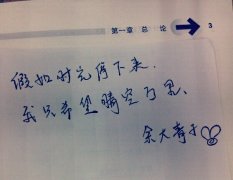 第一章 总 论 3
假如时光停下来.
我只希望晴空万里、
余大青子